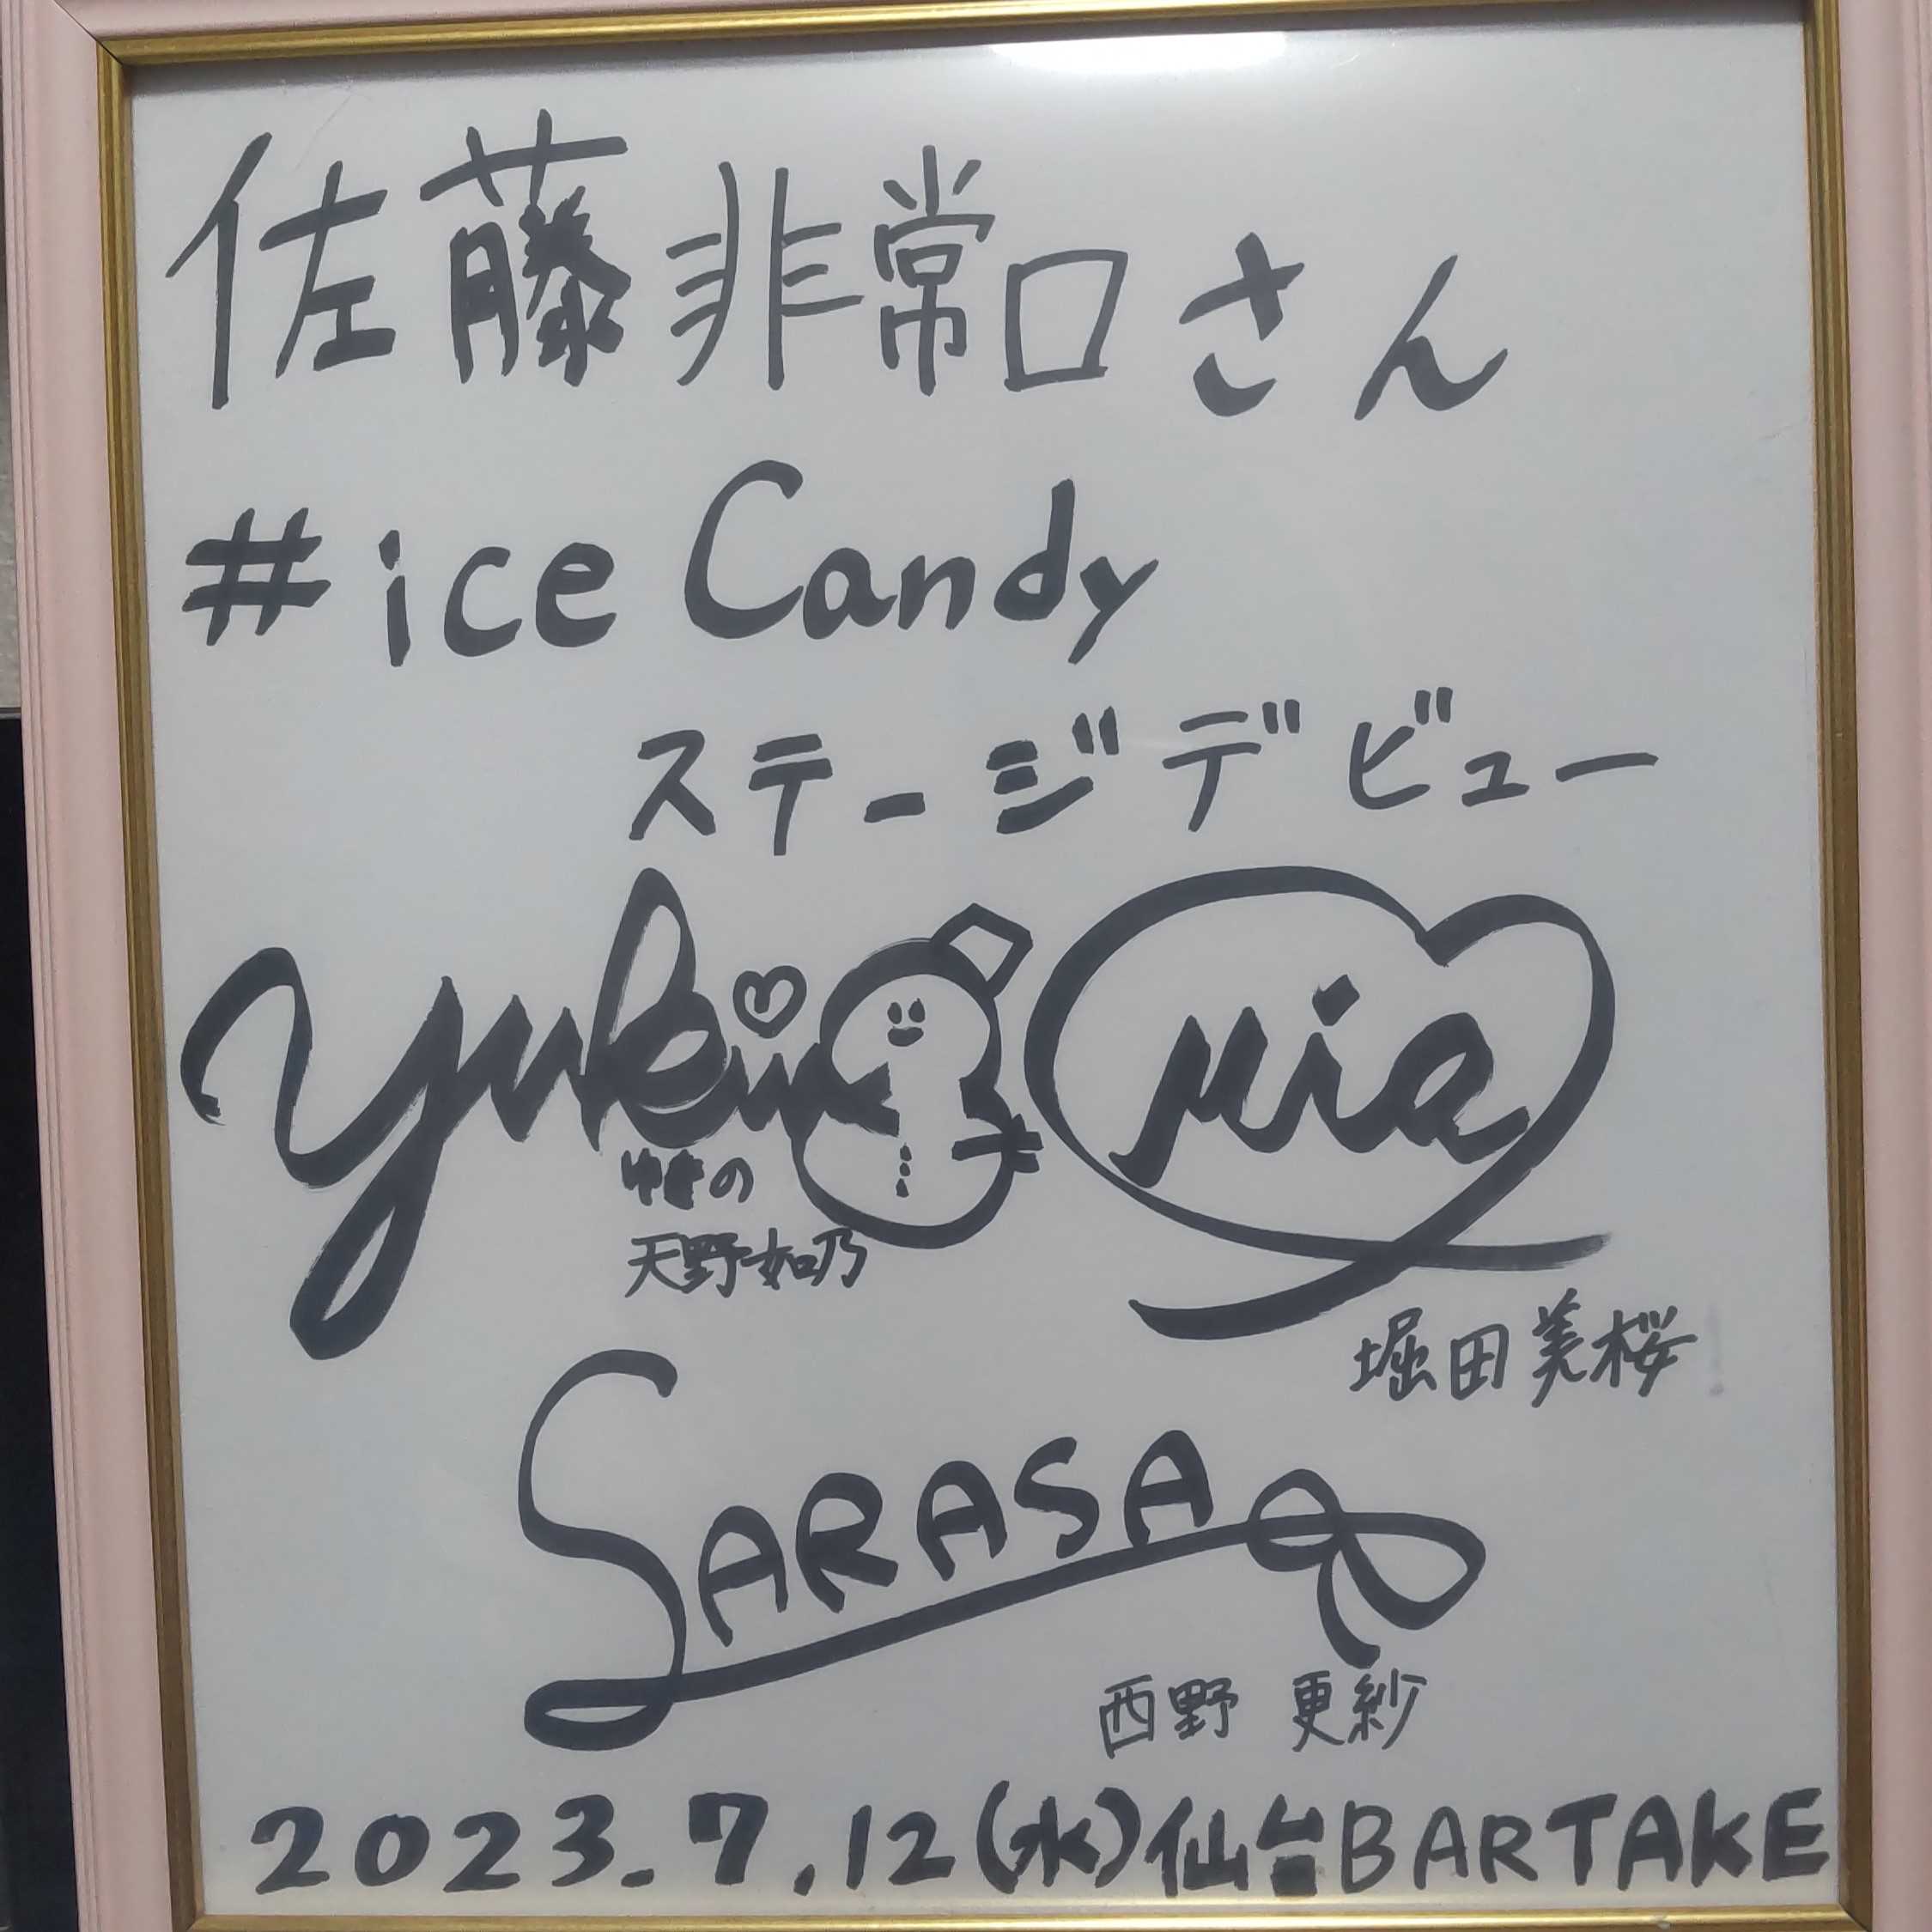 佐藤非常口さん
#ice Candy
ステージデビュー
yukino
ゆきの
天野如乃
mia
堀田美桜
SARASA
西野 更紗
2023.7.12(水)仙台BARTAKE